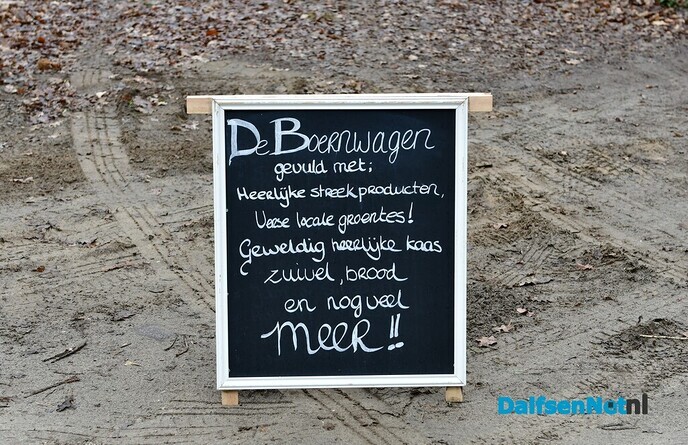 De Boernwagen
gevuld met;
Heerlijke streekproducten,
Verse locale groentes!
Geweldig heerlijke kaas
zuivel, brood
en nog veel
MEER!!
DalfsenNet.nl